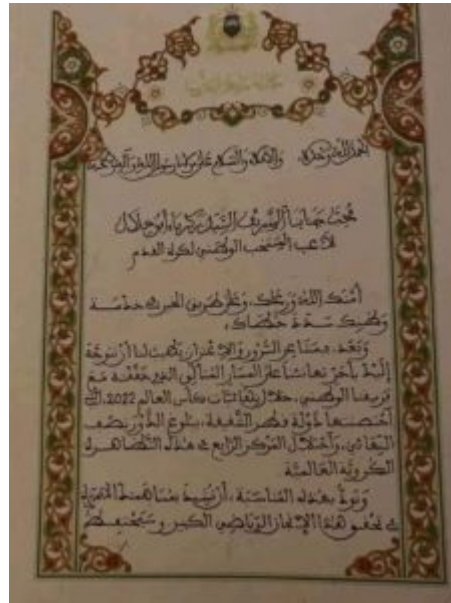 الحمد لله وحده والصلاة والسلام على مولانا رسول الله وآله وصحبه
السيد زكرياء أبو خلال
لاعب المنتخب الوطني لكرة القدم
أمنك الله ورعاك، وعلى طريق الخير
وطنك سدد خطاك،
وبعد، فمن السرور والاعتزاز أن نتوجه
إليك بأحر تهانئنا على المسار المتألق الذي حققته مع
فريقنا الوطني، خلال نهائيات كأس العالم 2022، التي
احتضنتها دولة قطر الشقيقة، ببلوغ الدور نصف
النهائي، واحتلال المركز الرابع في هذه التظاهرة
الكروية العالمية.
ونود بهذه المناسبة، أن نشيد
في تحقيق هذا الإنجاز الرياضي الكبير